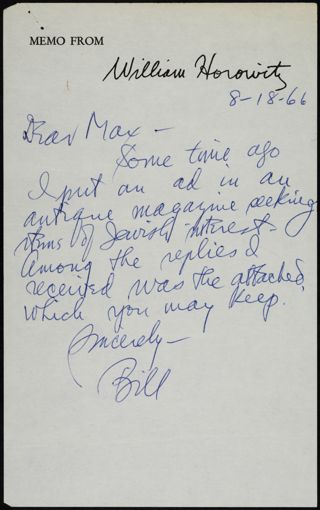 MEMO FROM
William Horowitz
8-18-66
Dear Max -
Some time ago
I put an ad in an
antique magazine seeking
items of Jewish interest.
Among the replies I
received was the attached,
which you may keep.
Sincerely -
Bill